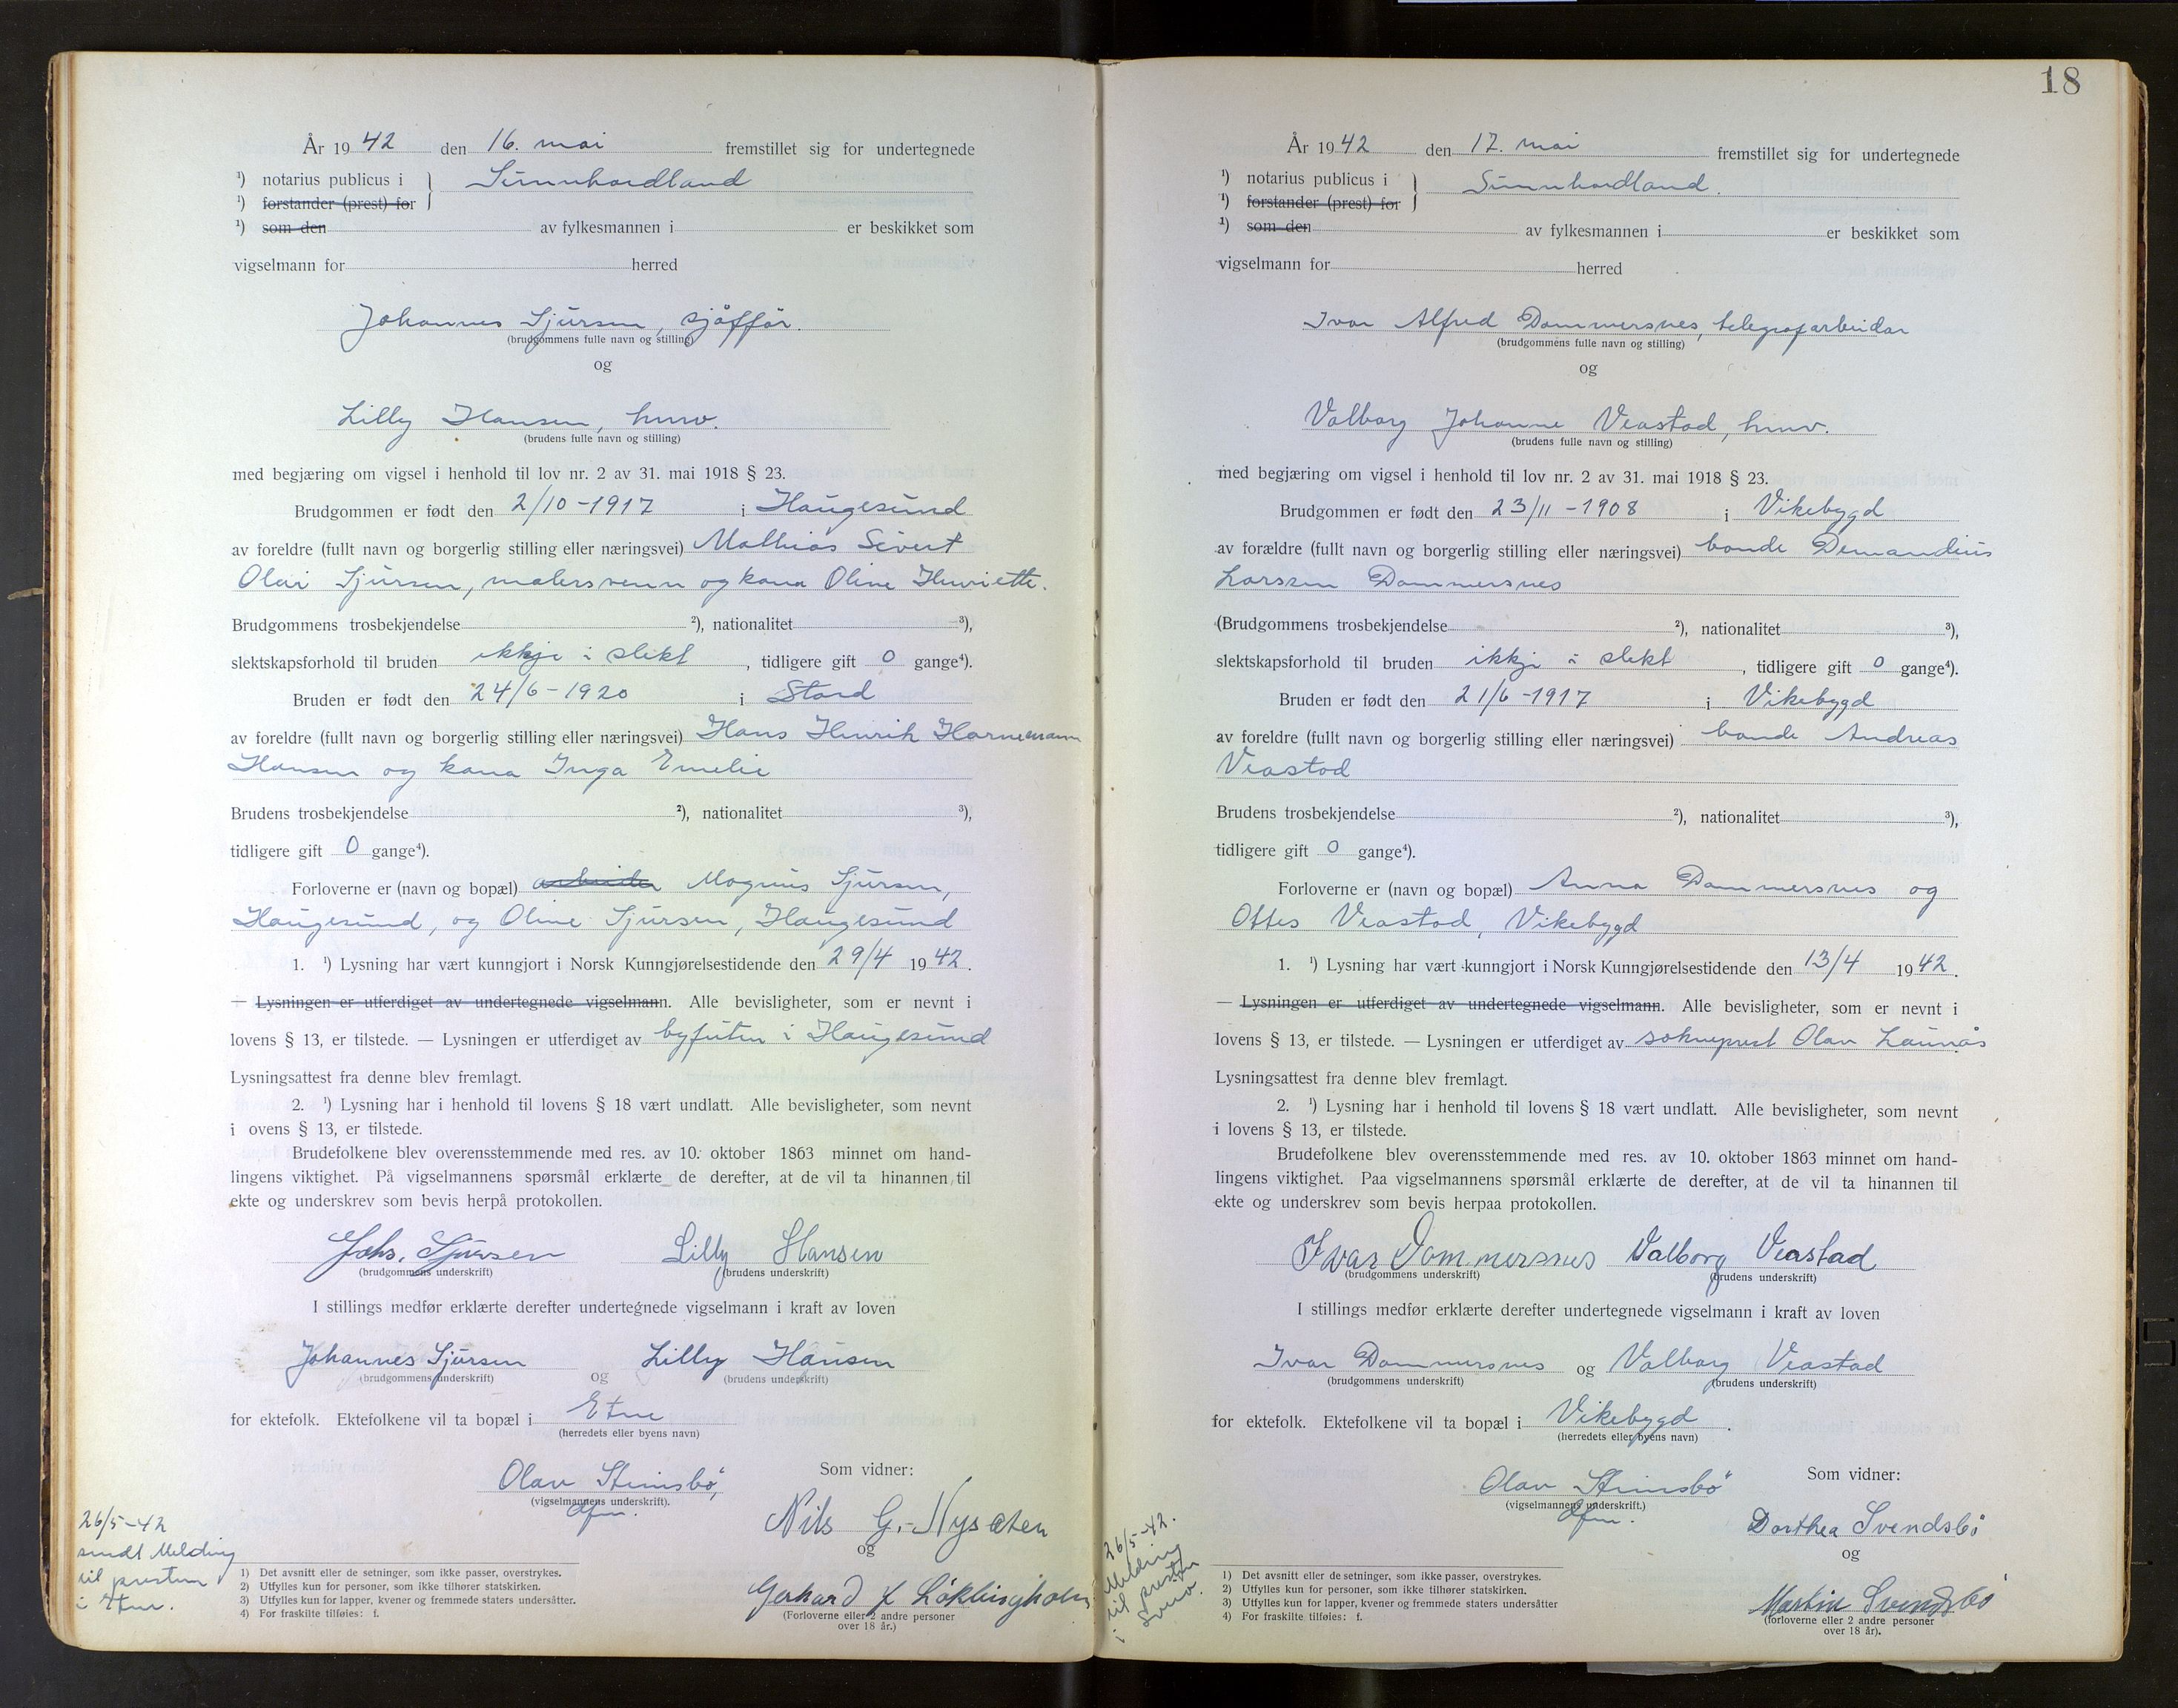 År 1942 den 16. mai fremstillet sig for undertegnede
¹) notarius publicus i } Sunnhordland
¹) forstander (prest) for
¹) som den av fylkesmannen i er beskikket som
vigselmann for herred
Johannes Sjursen, sjåffør.
(brudgommens fulle navn og stilling)
og
Lilly Hansen, husv.
(brudens fulle navn og stilling)
med begjæring om vigsel i henhold til lov nr. 2 av 31. mai 1918 § 23.
Brudgommen er født den 2/10-1917 i Haugesund
av foreldre (fullt navn og borgerlig stilling eller næringsvei) Mathias Sivert
Olai Sjursen, malersvenn og kona Oline Henriette.
Brudgommens trosbekjendelse ²), nationalitet ³),
slektskapsforhold til bruden ikkje i slekt, tidligere gift 0 gange⁴).
Bruden er født den 24/6-1920 i Stord
av foreldre (fullt navn og borgerlig stilling eller næringsvei) Hans Henrik Hornemann
Hansen og kona Inga Emelie
Brudens trosbekjendelse ²), nationalitet ³),
tidligere gift 0 gange⁴).
Forloverne er (navn og bopæl) arbeider Magnus Sjursen,
Haugesund, og Oline Sjursen, Haugesund
1. ¹) Lysning har vært kunngjort i Norsk Kunngjørelsestidende den 29/4 1942.
— Lysningen er utferdiget av undertegnede vigselmann. Alle bevisligheter, som er nevnt i
lovens § 13, er tilstede. — Lysningen er utferdiget av byfuten i Haugesund
Lysningsattest fra denne blev fremlagt.
2. ¹) Lysning har i henhold til lovens § 18 vært undlatt. Alle bevisligheter, som nevnt
i ovens § 13, er tilstede.
Brudefolkene blev overensstemmende med res. av 10. oktober 1863 minnet om hand-
lingens viktighet. På vigselmannens spørsmål erklærte de derefter, at de vil ta hinannen til
ekte og underskrev som bevis herpå protokollen.
Johs. Sjursen Lilly Hansen
(brudgommens underskrift) (brudens underskrift)
I stillings medfør erklærte derefter undertegnede vigselmann i kraft av loven
Johannes Sjursen og Lilly Hansen
(brudgommens underskrift) (brudens underskrift)
for ektefolk. Ektefolkene vil ta bopæl i Etne
(herredets eller byens navn)
Olav Steinsbø,
(vigselmannens underskrift).
Som vidner:
Nils G. Nysæten
og
Gerhard
(Forloverne eller 2 andre personer
over 18 år.)
26/5-42
sendt Melding
til presten
i Etne.
1) Det avsnitt eller de setninger, som ikke passer, overstrykes.
2) Utfylles kun for personer, som ikke tilhører statskirken.
3) Utfylles kun for lapper, kvener og fremmede staters undersåtter.
4) For fraskilte tilføles: f.
18
År 1942 den 17. mai fremstillet sig for undertegnede
¹) notarius publicus i } Sunnhordland.
¹) forstander (prest) for
¹) som den av fylkesmannen i er beskikket som
vigselmann for herred
Ivar Alfred Dommersnes, telegrafarbeidar
(brudgommens fulle navn og stilling)
og
Valborg Johanne Veastad, husv.
(brudens fulle navn og stilling)
med begjæring om vigsel i henhold til lov nr. 2 av 31. mai 1918 § 23.
Brudgommen er født den 23/11-1908 i Vikebygd
av forældre (fullt navn og borgerlig stilling eller næringsvei) bonde Demandius
Larssen Dommersnes
(Brudgommens trosbekjendelse ²), nationalitet ³),
slektskapsforhold til bruden ikkje i slekt, tidligere gift 0 gange⁴).
Bruden er født den 21/6-1917 i Vikebygd
av foreldre (fullt navn og borgerlig stilling eller næringsvei) bonde Andreas
Veastad
Brudens trosbekjendelse ²), nationalitet ³),
tidligere gift 0 gange⁴).
Forloverne er (navn og bopæl) Anna Dommersnes og
Ottes Veastad, Vikebygd
1. ¹) Lysning har vært kunngjort i Norsk Kunngjørelsestidende den 13/4 1942.
— Lysningen er utferdiget av undertegnede vigselmann. Alle bevisligheter, som er nevnt i
lovens § 13, er tilstede. — Lysningen er utferdiget av sokneprest Olav Launås
Lysningsattest fra denne blev fremlagt.
2. ¹) Lysning har i henhold til lovens § 18 vært undlatt. Alle bevisligheter, som nevnt
i lovens § 13, er tilstede.
Brudefolkene blev overensstemmende med res. av 10. oktober 1863 minnet om hand-
lingens viktighet. Paa vigselmannens spørsmål erklærte de derefter, at de vil ta hinannen til
ekte og underskrev som bevis herpaa protokollen.
Ivar Dommersnes Valborg Veastad
(brudgommens underskrift) (brudens underskrift)
I stillings medfør erklærte derefter undertegnede vigselmann i kraft av loven
Ivar Dommersnes og Valborg Veastad
(brudgommens underskrift) (brudens underskrift)
for ektefolk. Ektefolkene vil ta bopæl i Vikebygd.
(herredets eller byens navn)
Olav Steinsbø
(vigselmannens underskrift.)
Som vidner:
Dorthea Svendsbø
og
Martin Svendsbø
(forloverne eller 2 andre personer
over 18 år).
26/5-42.
Melding
til presten
i Sveio.
1) Det avsnitt eller de setninger, som ikke passer, overstrykes.
2) Utfylles kun for personer, som ikke tilhører statskirken.
3) Utfylles kun for lapper, kvener og fremmede staters undersåtter
4) For fraskilte tilføles: f.